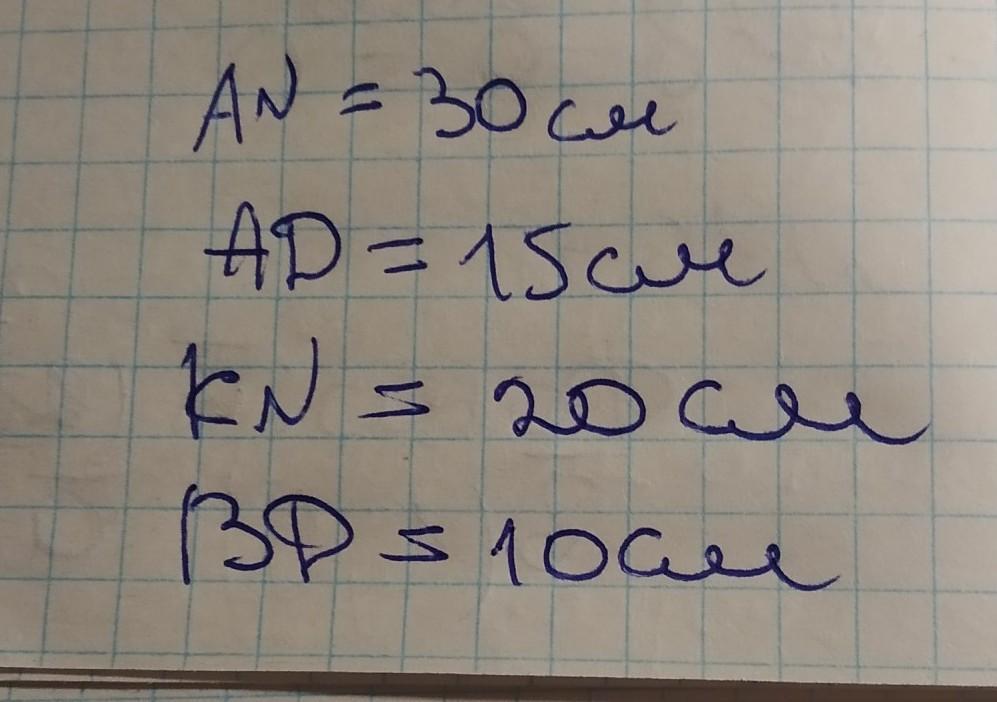 AN = 30 см
AD = 15 см
KN = 20 см
BD = 10 см